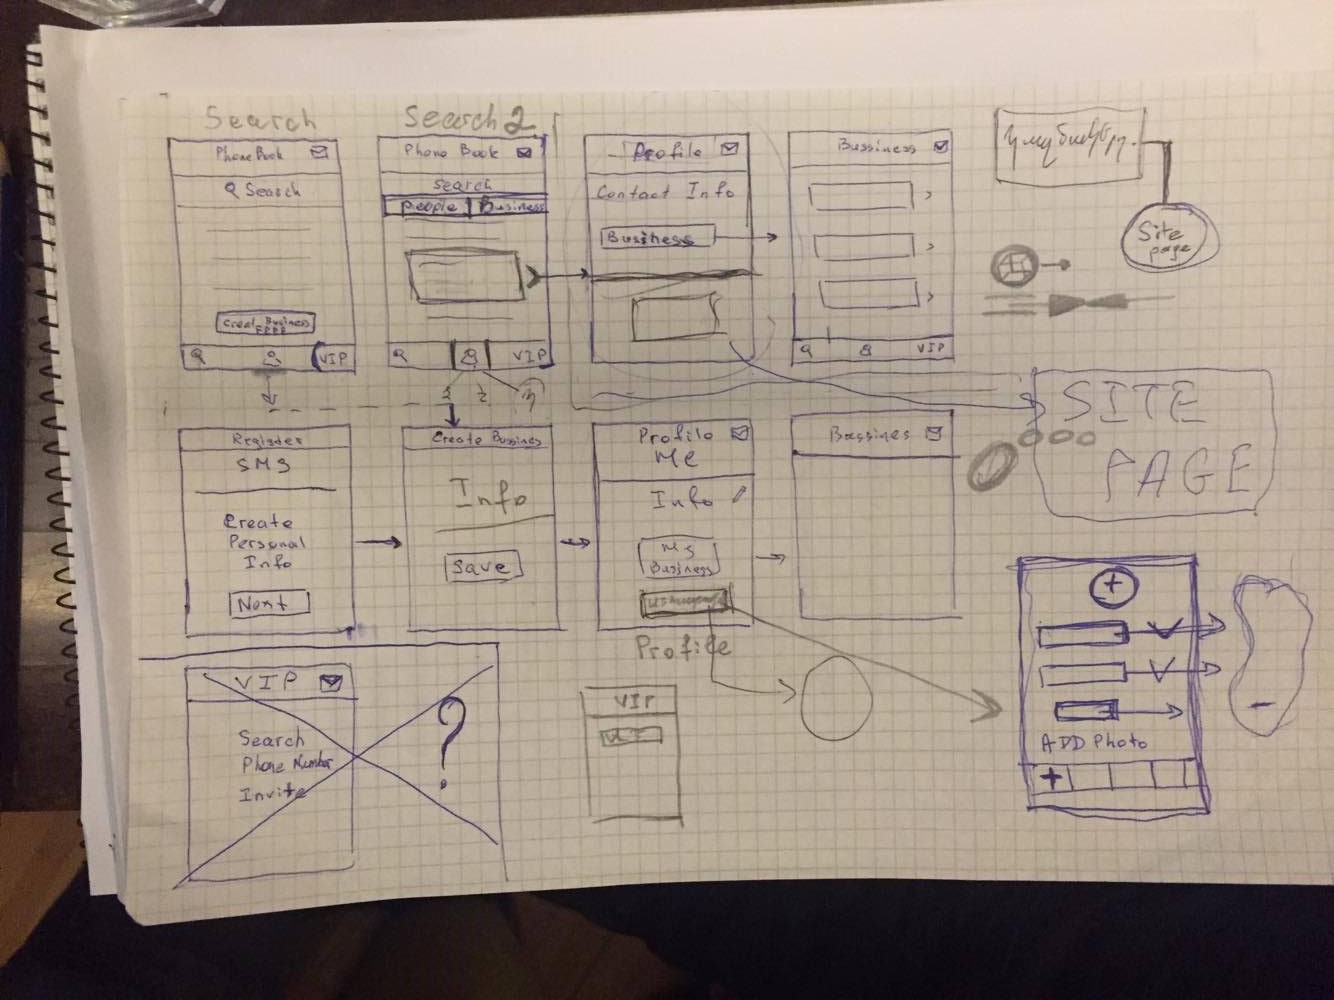 Search
Search 2
PhoneBook
Search
Creat Business
VIP
Phone Book
Search
People Business
VIP
Profile
Contact Info
Bussiness
Bussiness
VIP
Site
page
Register
SMS
Create
Personal
Info
Next
Create Bussines
Info
Save
Profile
Me
Info
My
Bussiness
Profile
Bussines
SITE
PAGE
VIP
Search
Phone Number
Invite
?
VIP
+
ADD Photo
+
-